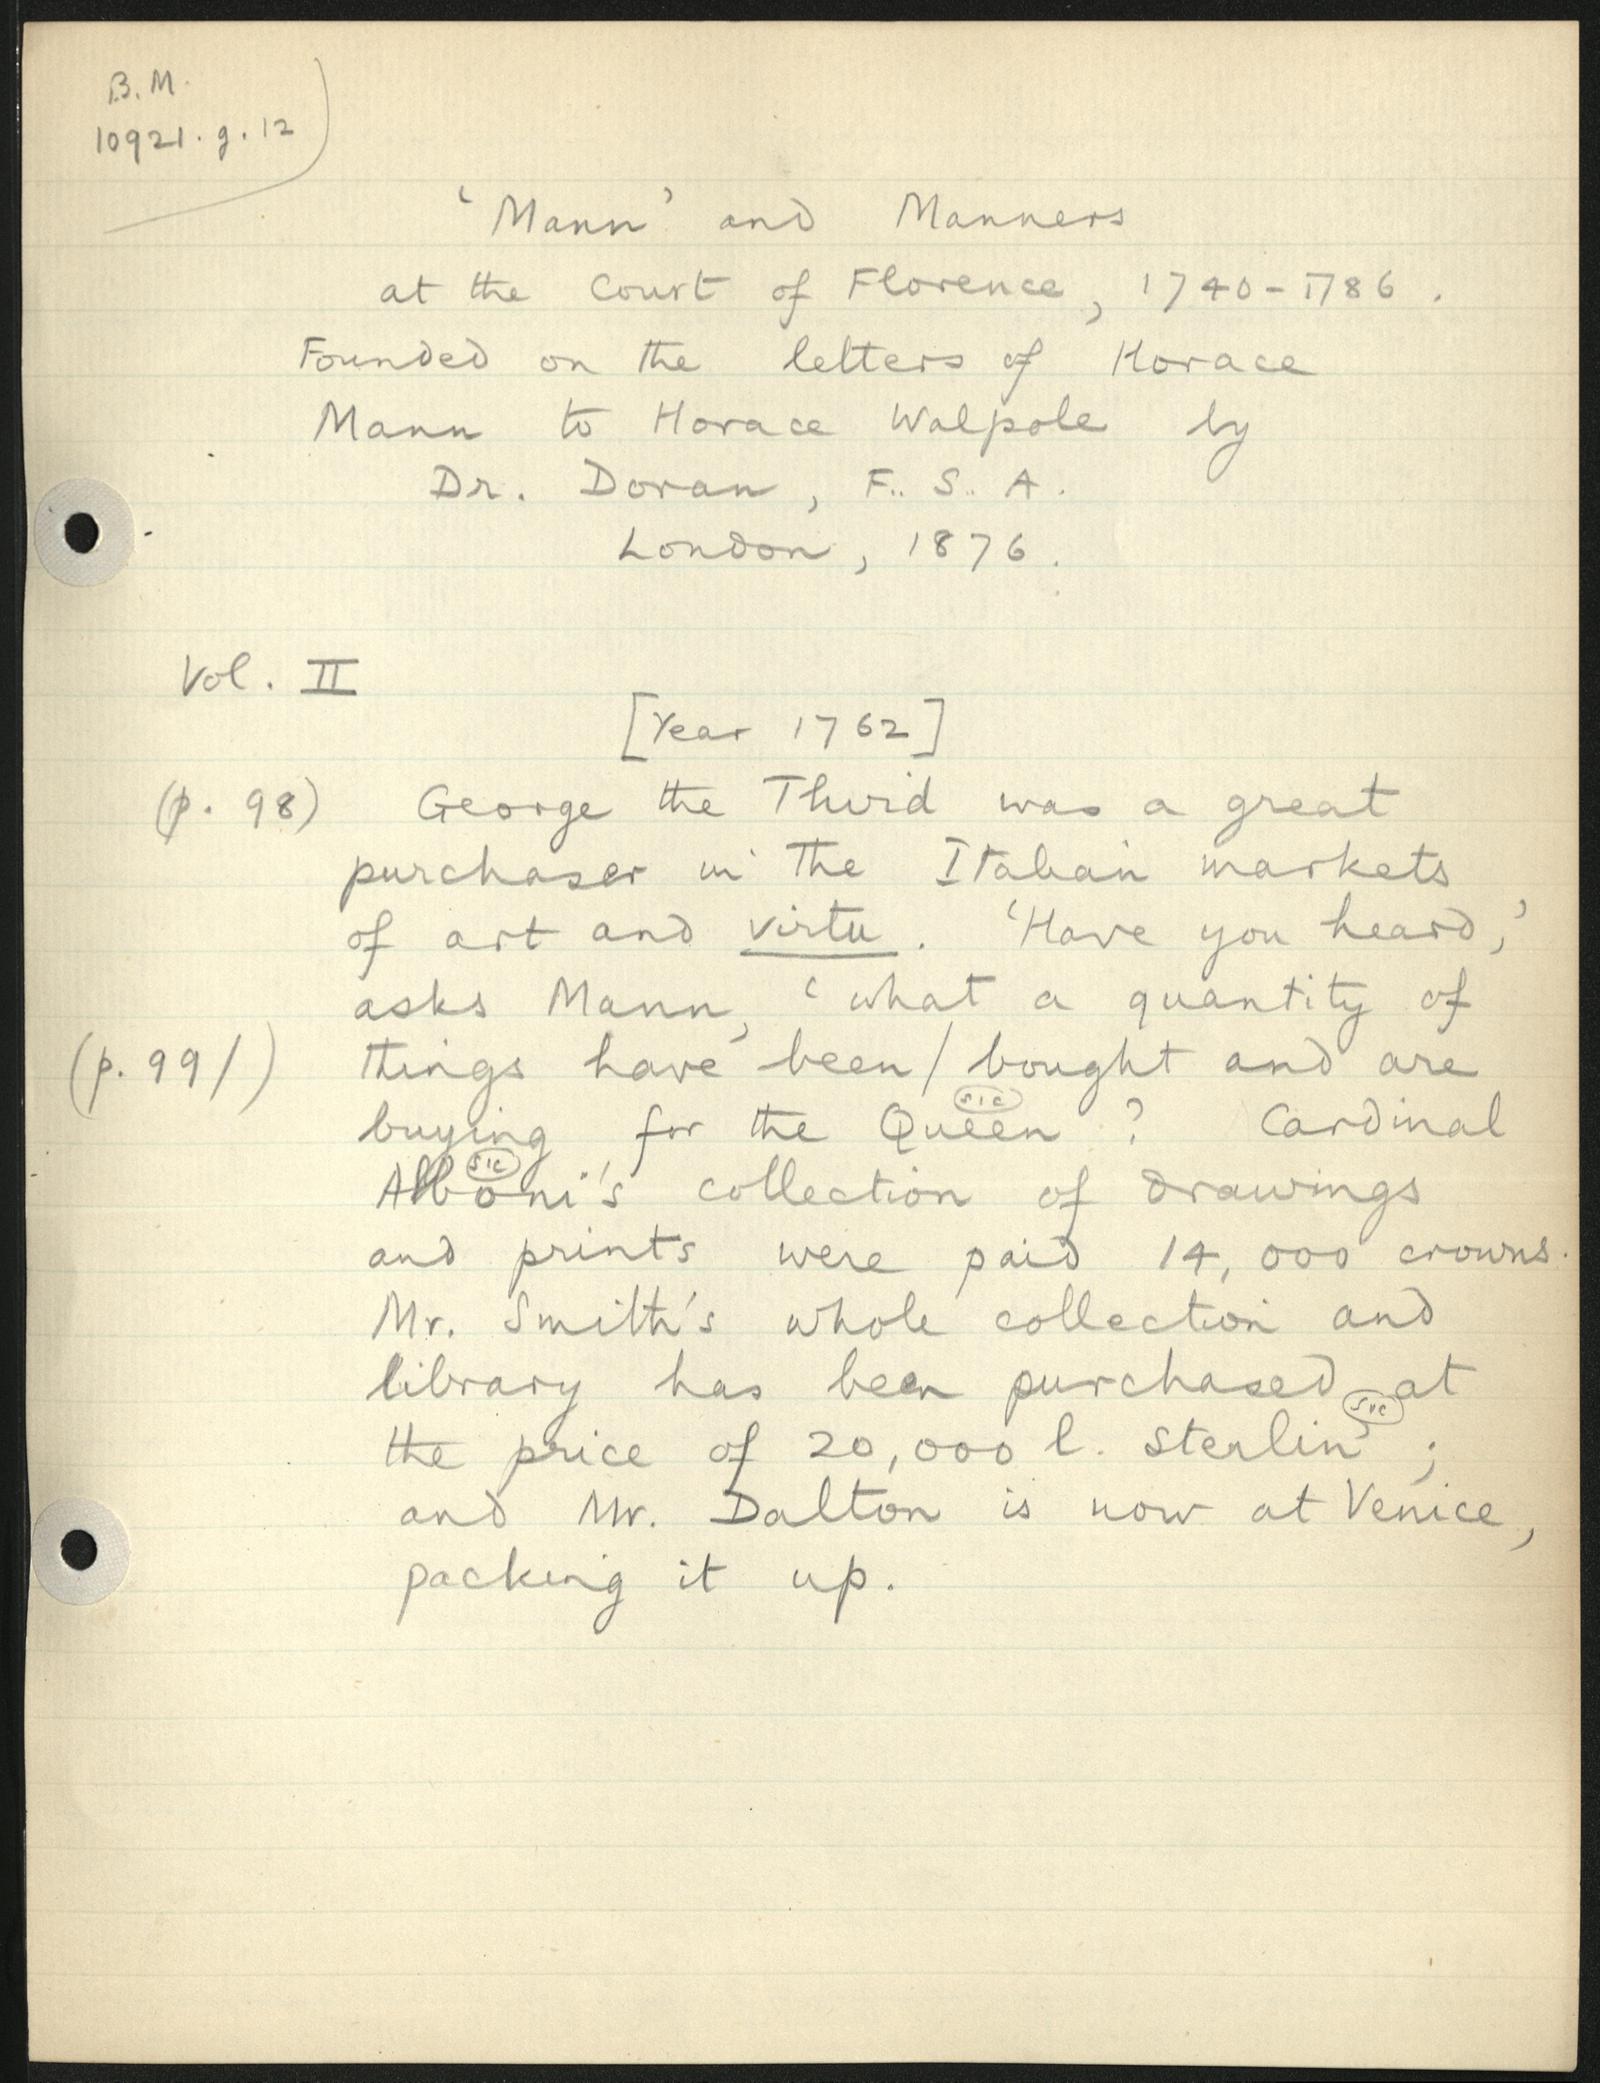 B. M.
10921. g. 12
‘Mann’ and Manners
at the Court of Florence, 1740-1786.
Founded on the letters of Horace
Mann to Horace Walpole by
Dr. Doran, F.. S.. A.
London, 1876.
Vol. II
[Year 1762]
(p. 98) George the Third was a great
purchaser in the Italian markets
of art and virtu. ‘Have you heard,’
asks Mann, ‘what a quantity of
(p. 99/) things have been/bought and are
sic
buying for the Queen? Cardinal
sic
Alboni's collection of drawings
and prints were paid 14,000 crowns.
Mr. Smith's whole collection and
library has been purchased at
sic
the price of 20,000 l. sterlin';
and Mr. Dalton is now at Venice,
packing it up.